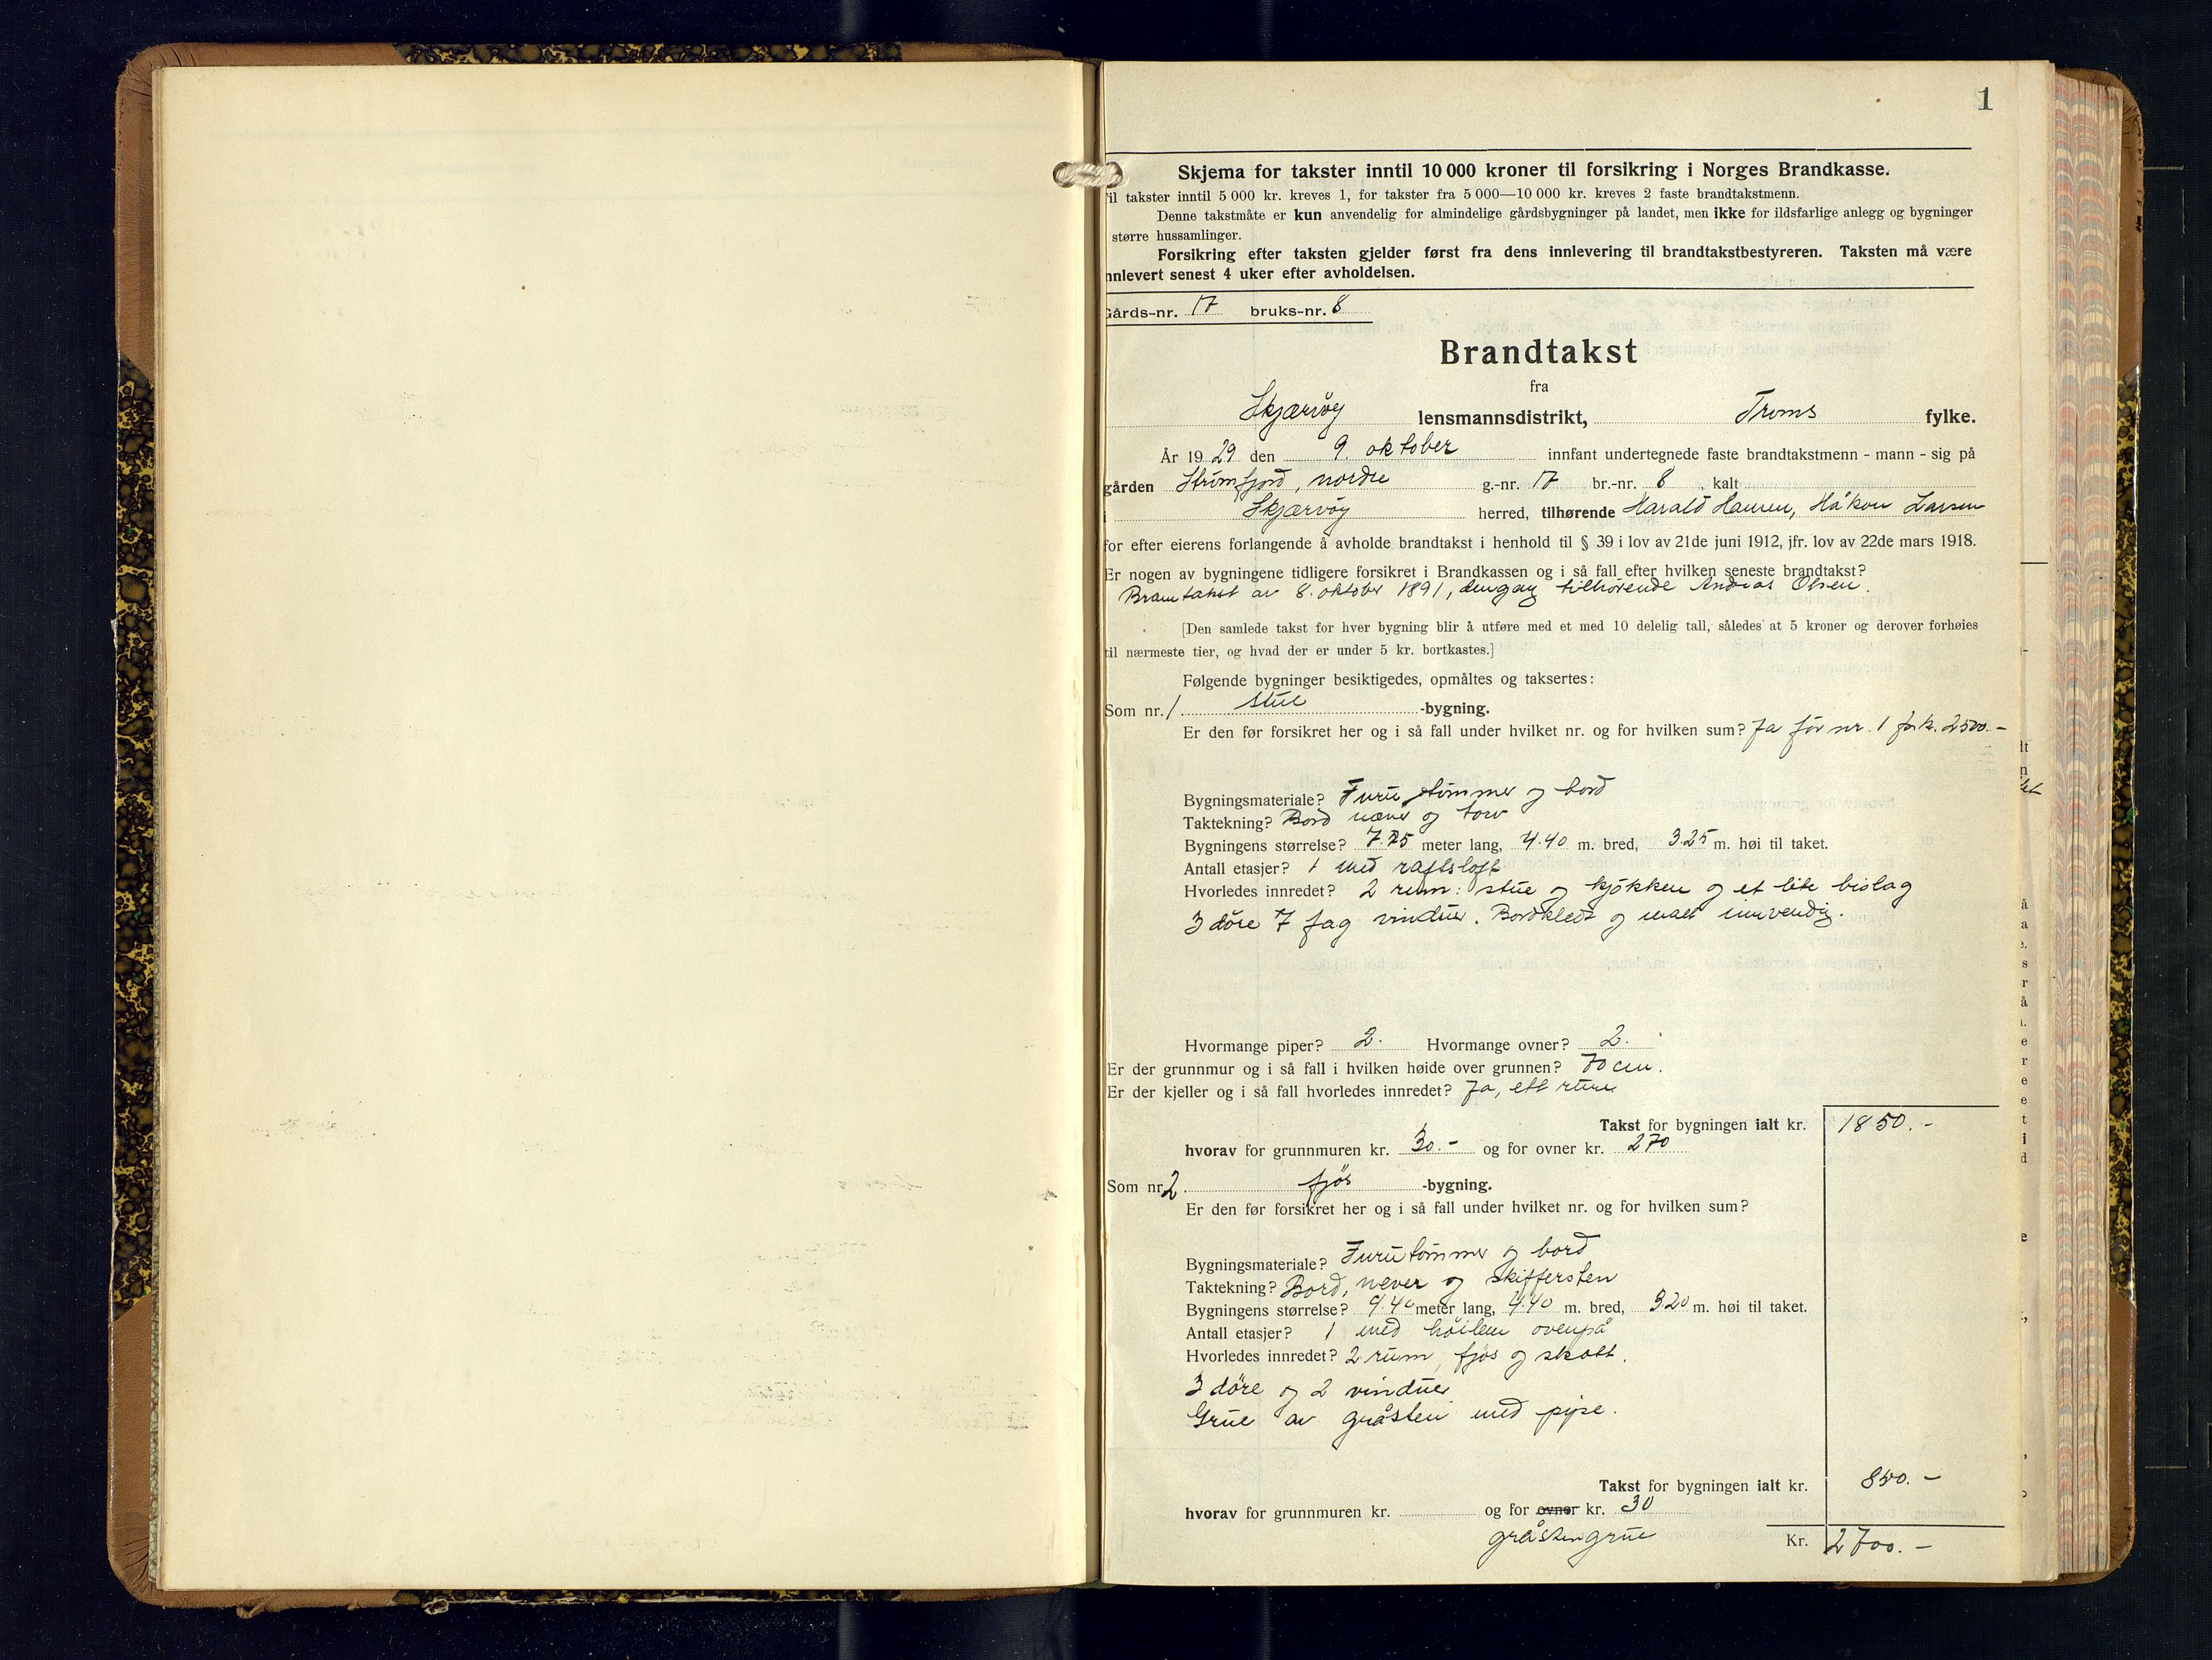 1
Skjema for takster inntil 10 000 kroner til forsikring i Norges Brandkasse.
il takster inntil 5 000 kr. kreves 1, for takster fra 5 000—10 000 kr. kreves 2 faste brandtakstmenn.
Denne takstmåte er kun anvendelig for almindelige gårdsbygninger på landet, men ikke for ildsfarlige anlegg og bygninger
større hussamlinger.
Forsikring efter taksten gjelder først fra dens innlevering til brandtakstbestyreren. Taksten må være
nnlevert senest 4 uker efter avholdelsen.
Gårds-nr. 17 bruks-nr. 8
Brandtakst
fra
Skjærvöy lensmannsdistrikt, Troms fylke.
År 1929 den 9. oktober innfant undertegnede faste brandtakstmenn - mann - sig på
gården Strømfjord, nordre g.-nr. 17 br.-nr. 8, kalt
i Skjærvöy herred, tilhørende Harald Hansen, Håkon Larsen
for efter eierens forlangende å avholde brandtakst i henhold til § 39 i lov av 21de juni 1912, jfr. lov av 22de mars 1918.
Er nogen av bygningene tidligere forsikret i Brandkassen og i så fall efter hvilken seneste brandtakst?
Brantakst av 8. oktober 1891, dengang tilhørende Andreas Olsen.
[Den samlede takst for hver bygning blir å utføre med et med 10 delelig tall, således at 5 kroner og derover forhøies
til nærmeste tier, og hvad der er under 5 kr. bortkastes.]
Følgende bygninger besiktigedes, opmåltes og taksertes:
Som nr. 1 stue -bygning.
Er den før forsikret her og i så fall under hvilket nr. og for hvilken sum? Ja for nr. 1 for k. 2500.-
Bygningsmateriale? Furutömmer og bord
Taktekning? Bord never og torv
Bygningens størrelse? 7.75 meter lang, 4.40 m. bred, 3.25 m. høi til taket.
Antall etasjer? 1 med raftsloft
Hvorledes innredet? 2 rum: stue og kjökken og et lite bislag
3 döre 7 fag vinduer. Bordkledt og malt innvendig.
Hvormange piper? 2. Hvormange ovner? 2.
Er der grunnmur og i så fall i hvilken høide over grunnen? 70 cm.
Er der kjeller og i så fall hvorledes innredet? Ja, ett rum
Takst for bygningen ialt kr. 1850.-
hvorav for grunnmuren kr. 30.- og for ovner kr. 270
Som nr 2 fjös -bygning.
Er den før forsikret her og i så fall under hvilket nr. og for hvilken sum?
Bygningsmateriale? Furutömmer og bord
Taktekning? Bord, never og skiffersten
Bygningens størrelse? 9.40 meter lang, 4.40 m. bred, 3.20 m. høi til taket.
Antall etasjer? 1 med höilem ovenpå
Hvorledes innredet? 2 rum, fjös og skott.
3 döre og 2 vinduer
Grue av gråsten med pipe.
Takst for bygningen ialt kr. 850.-
hvorav for grunnmuren kr. og for ovner kr. 30
gråstengrue Kr. 2700.-